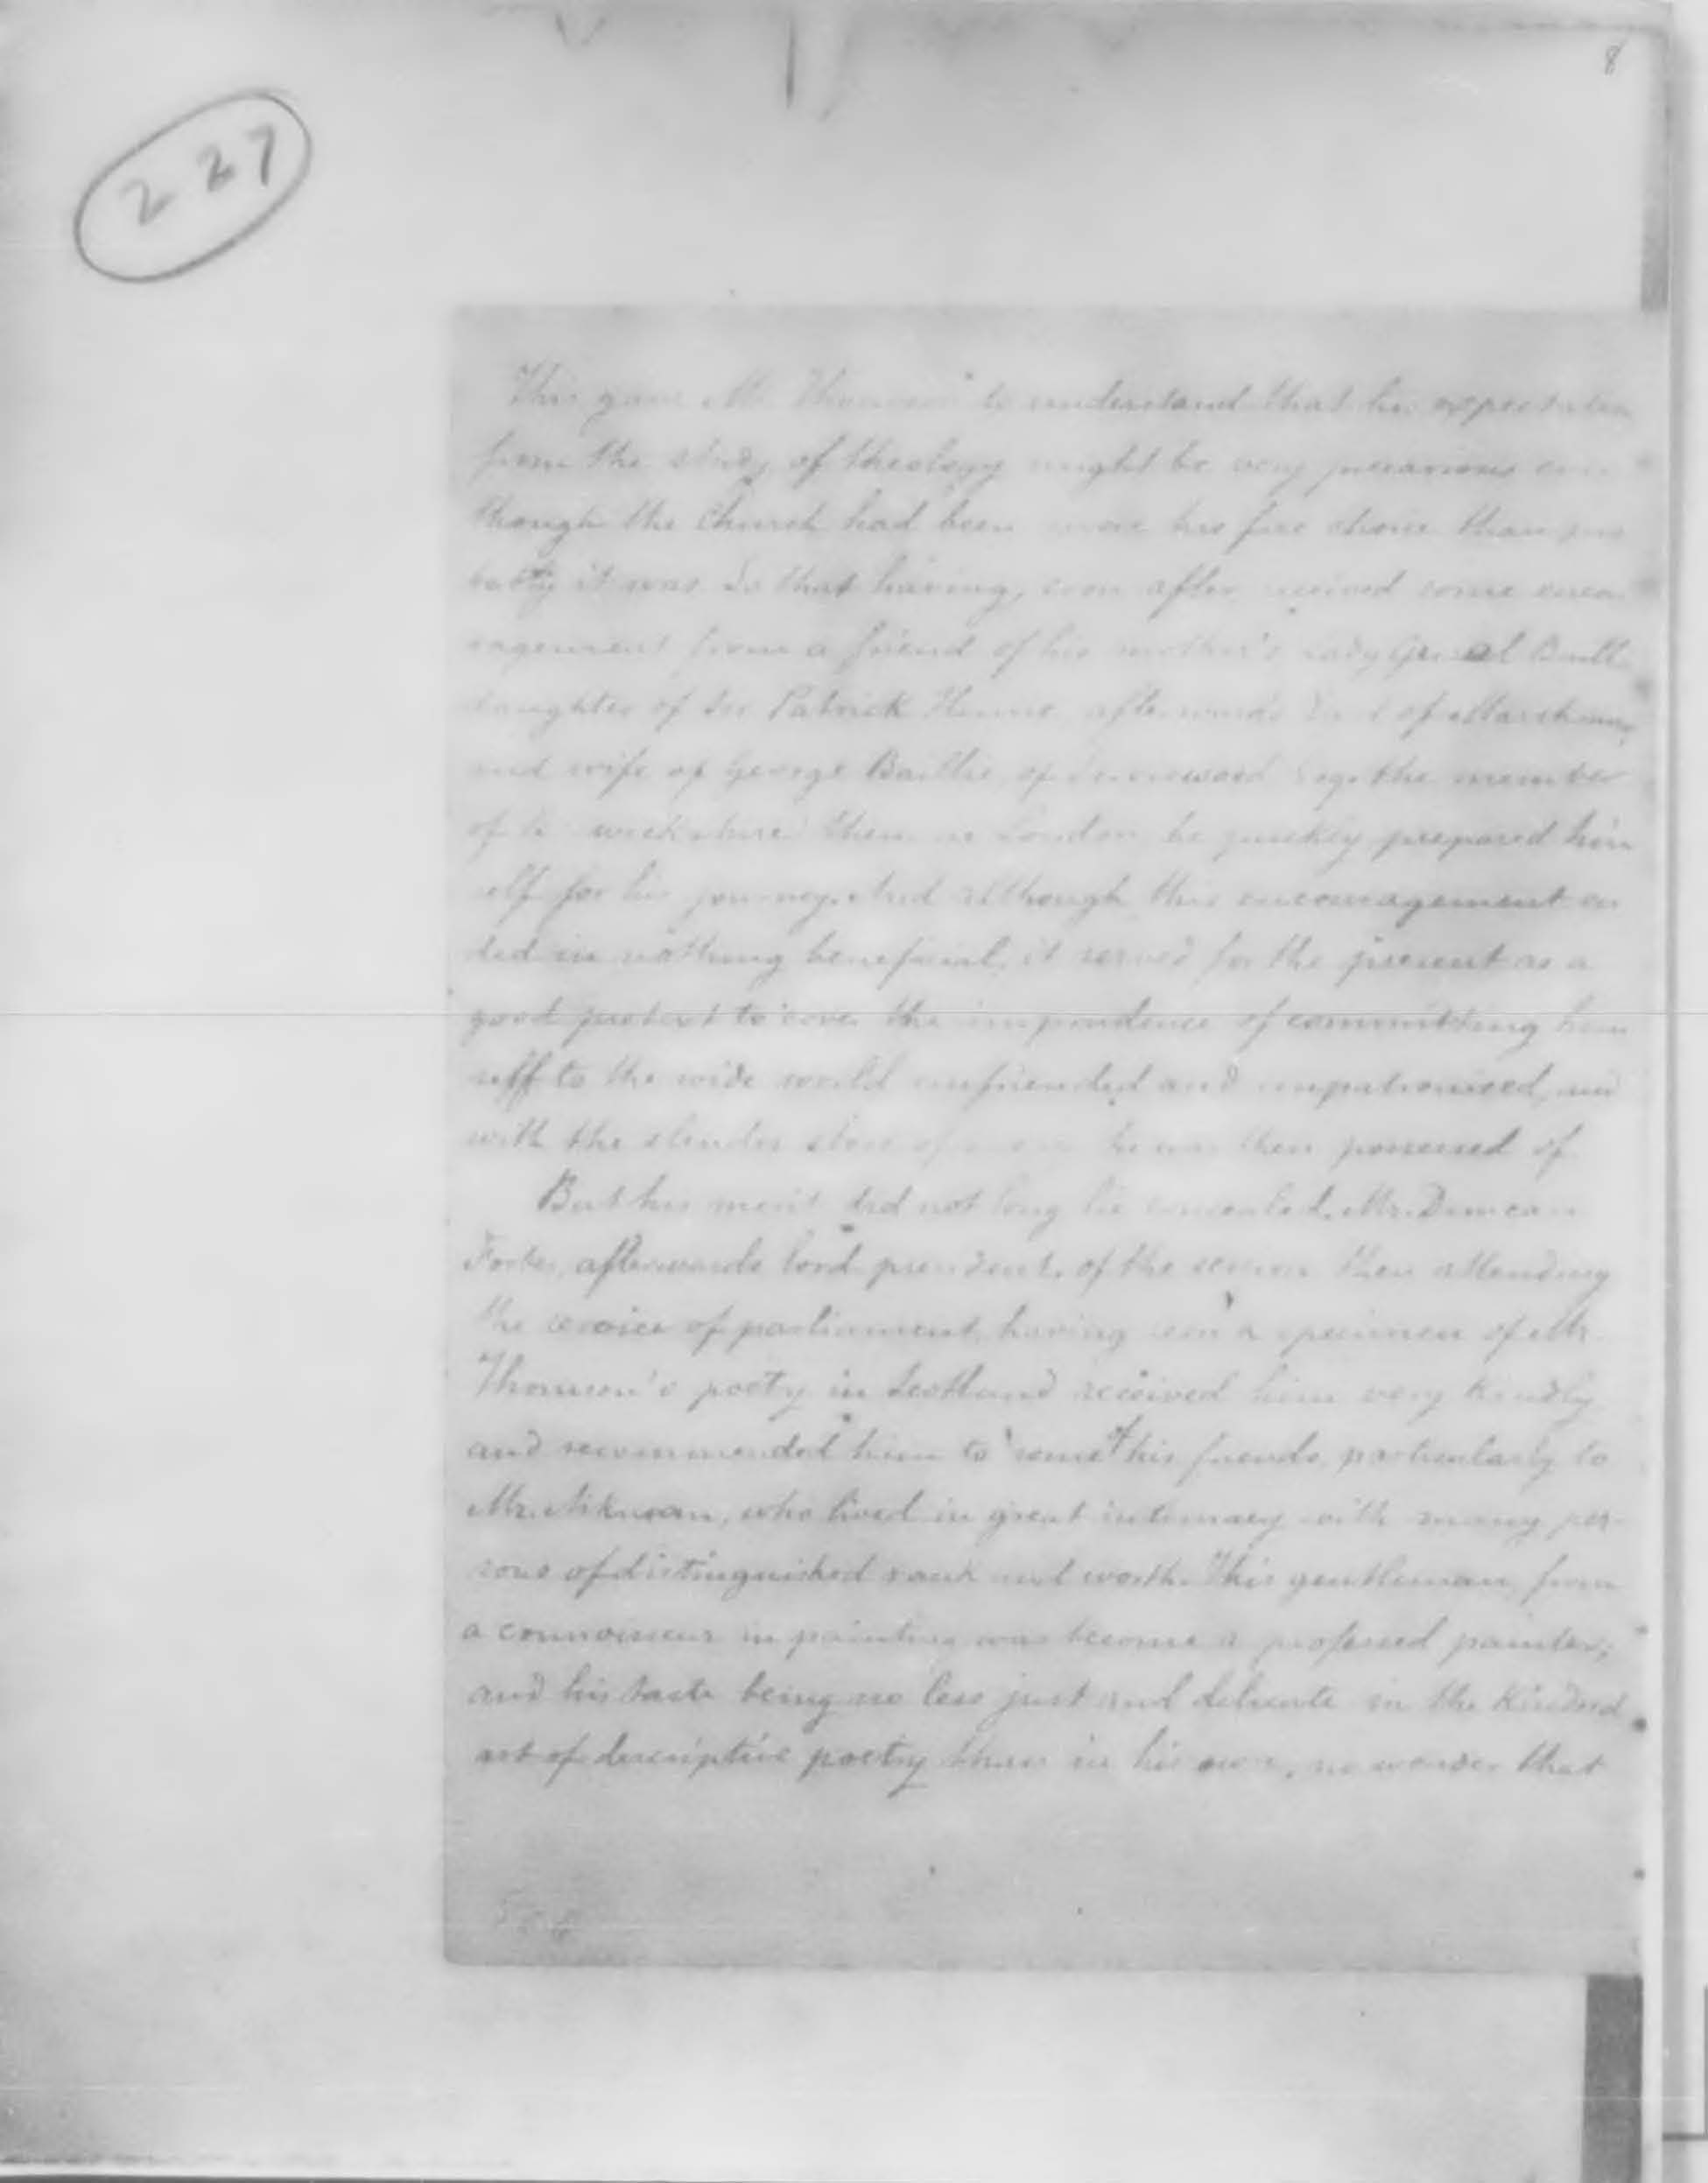 8
227
This gave Mr. Thomson to understand that his expectation
from the study of theology might be very precarious even
though the Church had been more his free choice than pro
bably it was. So that having, soon after received some encou
ragement from a friend of his mother's Lady Grizel Baill
daughter of Sir Patrick Hume afterwards Earl of Marchmont
and wife of George Baillie of Jerviswood Esq. the member
of Berwickshire then in London he quickly prepared him
self for his journey. And although this encouragement en
ded in nothing beneficial, it served for the present as a
good pretext to cover the imprudence of committing him
self to the wide world unfriended and unpatronised, and
with the slender store of money he was then possessed of
But his merit did not long lie concealed. Mr. Duncan
Forbes, afterwards lord president of the session then attending
the service of parliament, having seen a specimen of Mr.
Thomson's poety in Scotland received him very kindly
and recommended him to some of his friends, particularly to
Mr. Aikman, who lived in great intimacy with many per-
sons of distinguished rank and worth. This gentleman, from
a connoisseur in painting was become a professed painter;
and his taste being no less just and delicate in the kindred
art of descriptive poetry than in his own, no wonder that